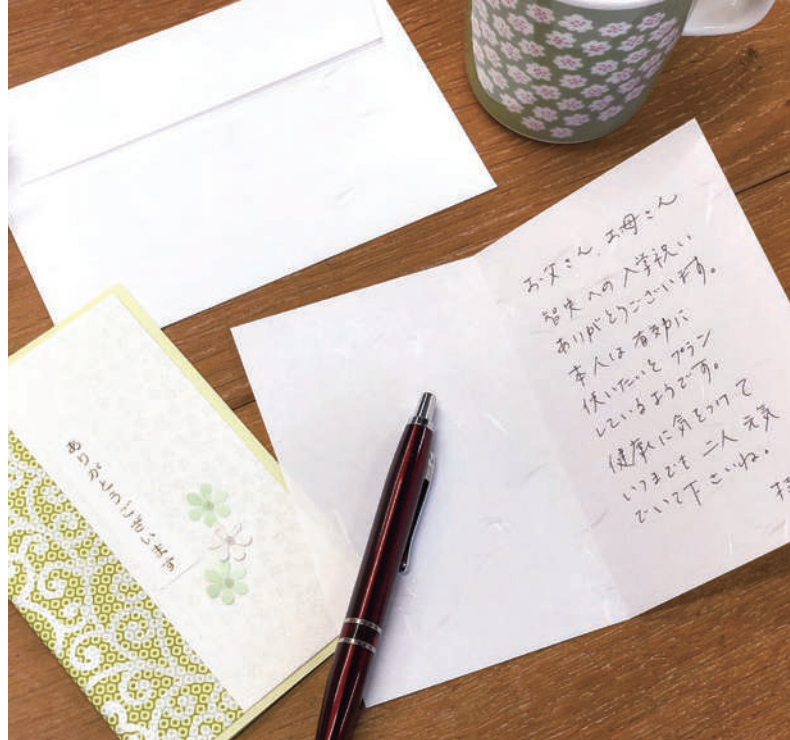 ありがとうございます
お父さん、お母さん
智史への入学祝い
ありがとうございます。
本人は有効に
使いたいとプラン
しているようです。
健康に気をつけて
いつまでも二人元気
でいて下さいね。